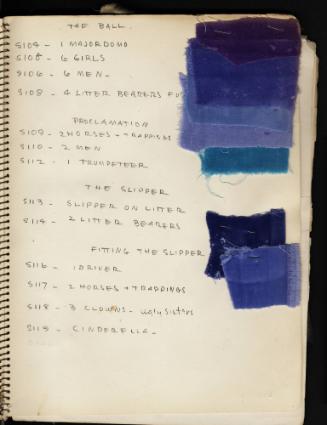 THE BALL.
S104 - 1 MAJORDOMO
S105 - 6 GIRLS
S106 - 6 MEN -
S108 - 4 LITTER BEARERS FU
PROCLAMATION
S109 - 2 HORSES + TRAPPINGS
S110 - 2 MEN
S112 - 1 TRUMPETEER
THE SLIPPER
S113 - SLIPPER ON LITTER
S114 - 2 LITTER BEARERS
FITTING THE SLIPPER
S116 - 1 DRIVER
S117 - 2 HORSES + TRAPPINGS
S118 - 3 CLOWNS - ugly sisters
S119 - CINDERELLA -